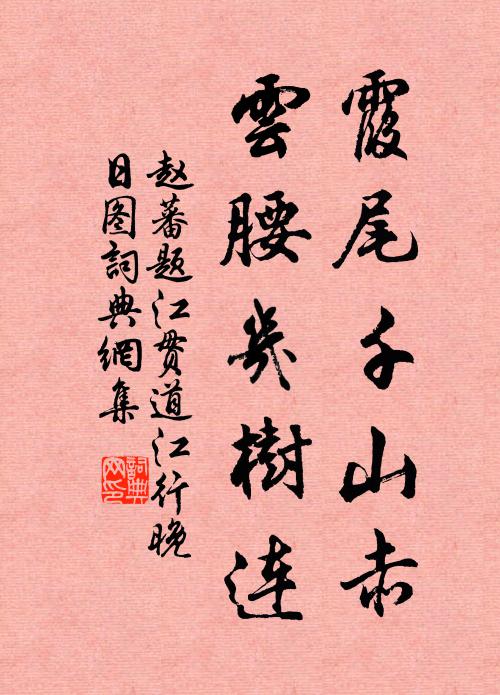 霞尾千山赤
雲腰幾樹连
赵蕃题江贯道江行晚
日图詞典網集
詞典
网印